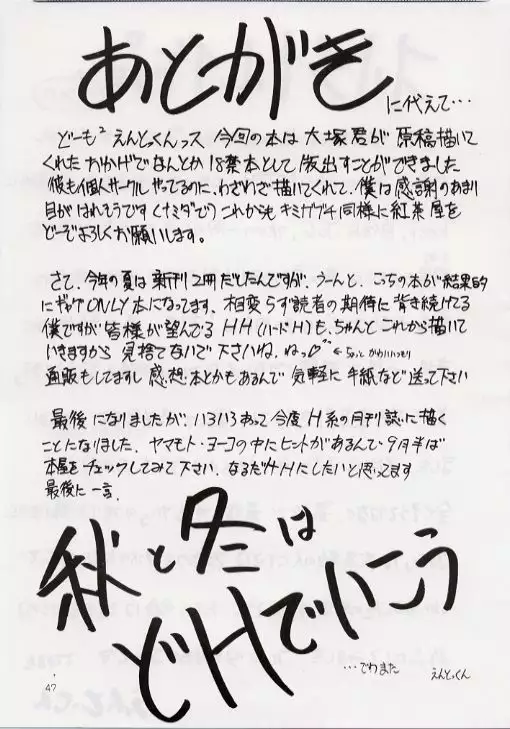 あとがき
に代えて…
どーも² えんどっくんっス 今回の本は大塚君が原稿描いて
くれたおかげでなんとか18禁本として版出すことができました
彼も個人サークルやってるのに、わざわざ描いてくれて、僕は感謝のあまり
目がはれそうです（ナミダで）これからも キミガブチ同様に紅茶屋を
どーぞよろしくお願いします。
さて、今年の夏は新刊2冊だしたんですが、うーんと、こっちの本が結果的
にギャグONLY本になってます、相変らず読者の期待に背き続けてる
僕ですが皆様が望んでるHH（ハードH）も、ちゃんとこれから描いて
いきますから 見捨てないで下さいね、ねっ♡ ←ちょっとかわいいつもり
通販もしてますし感想本とかもあるんで 気軽に手紙など送って下さい
最後になりましたが、いろいろあって今度H系の月刊誌に描く
ことになりました、ヤマモト・ヨーコの中にヒントがあるんで・9月半ば
本屋をチェックしてみて下さい、なるだけHにしたいと思ってます
最後に一言
秋と冬は
どHでいこう
…でわまた
えんどっくん
47